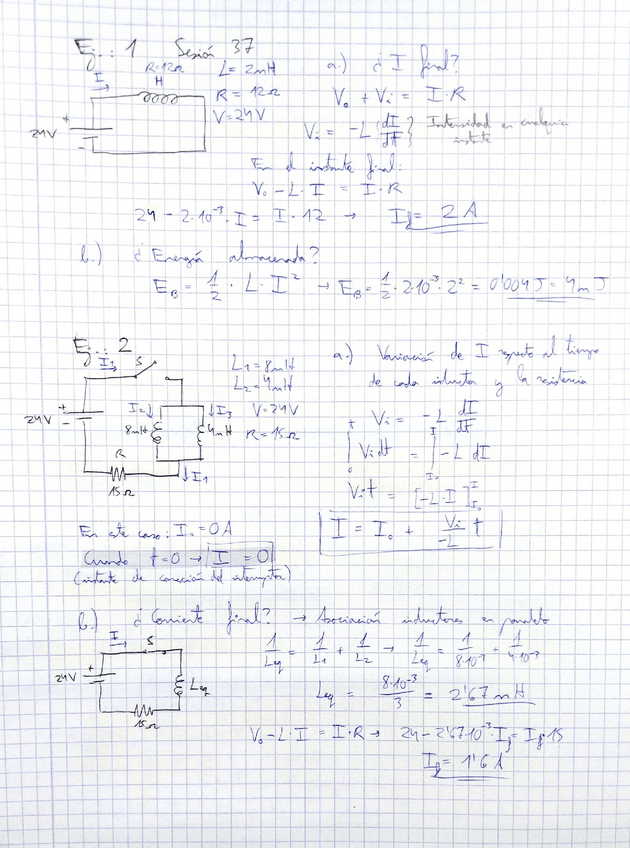 Ej.: 1 Sesión 37
R=12Ω
H
I
24V
+
-
L = 2mH
R = 12Ω
V=24V
a.) ¿ I final?
V₀ + Vi = I·R
Vi = -L (dI/dt) } Intensidad en cualquier instante
En el instante final:
V₀ - L·I = I·R
24 - 2·10⁻³·I = I·12 → If = 2 A
b.) ¿ Energía almacenada?
E_B = 1/2 · L · I² → E_B = 1/2 · 2·10⁻³ · 2² = 0'004 J = 4 mJ
Ej.: 2
I₁
S
24V
+
-
I₂↓
↓I₃
8mH
4mH
R
15Ω
↓I₁
L₁=8mH
L₂=4mH
V=24V
R=15Ω
a.) Variación de I respecto al tiempo
de cada inductor y la resistencia
Vi = -L dI/dt
∫₀ᵗ Vi dt = ∫_I₀^I -L dI
Vi t = [-L·I]_I₀^I
I = I₀ + Vi/-L t
En este caso: I₀ = 0A
Cuando t=0 → I = 0
(instante de conexión del interruptor)
b.) ¿ Corriente final? → Asociación inductores en paralelo
I
S
24V
+
-
Leq
15Ω
1/Leq = 1/L₁ + 1/L₂ → 1/Leq = 1/8·10⁻³ + 1/4·10⁻³
Leq = 8·10⁻³/3 = 2'67 mH
V₀ - L·I = I·R → 24 - 2'67·10⁻³·If = If·15
If = 1'6 A